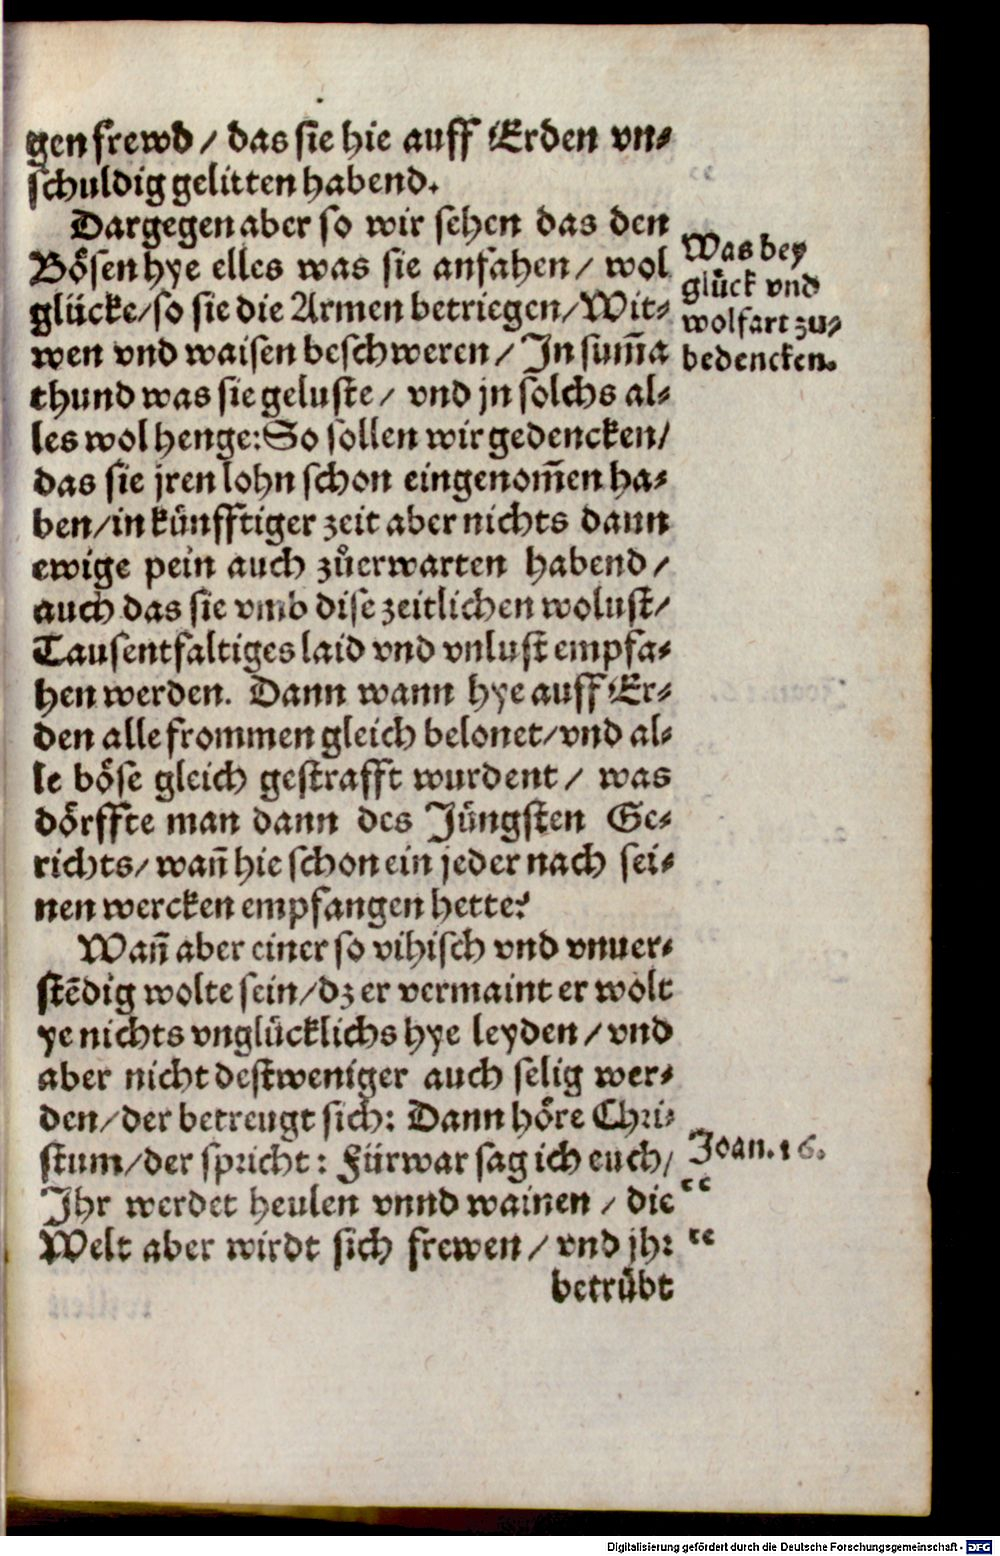 gen frewd / das sie hie auff Erden vn⸗
schuldig gelitten habend.
Dargegen aber so wir sehen das den
Bösen hye elles was sie anfahen / wol
glücke/so sie die Armen betriegen/Wit⸗
wen vnd waisen beschweren / In sum̃a
thund was sie geluste / vnd jn solchs al⸗
les wol henge: So sollen wir gedencken/
das sie jren lohn schon eingenom̃en ha⸗
ben/in künfftiger zeit aber nichts dann
ewige pein auch zůerwarten habend /
auch das sie vmb dise zeitlichen wolust/
Tausentfaltiges laid vnd vnlust empfa⸗
hen werden. Dann wann hye auff Er⸗
den alle frommen gleich belonet/vnd al⸗
le böse gleich gestrafft wurdent / was
dörffte man dann des Jüngsten Ge⸗
richts/wañ hie schon ein jeder nach sei⸗
nen wercken empfangen hette?
Wañ aber einer so vihisch vnd vnuer⸗
stēdig wolte sein/dz er vermaint er wölt
ye nichts vnglücklichs hye leyden / vnd
aber nicht destweniger auch selig wer⸗
den/der betreugt sich: Dann höre Chri⸗
stum/der spricht: Fürwar sag ich euch/
Ihr werdet heulen vnnd wainen / die
Welt aber wirdt sich frewen / vnd jhr
betrübt
Was bey
glück vnd
wolfart zu⸗
bedencken.
Joan. 16.
“
“
Digitalisierung gefördert durch die Deutsche Forschungsgemeinschaft - DFG